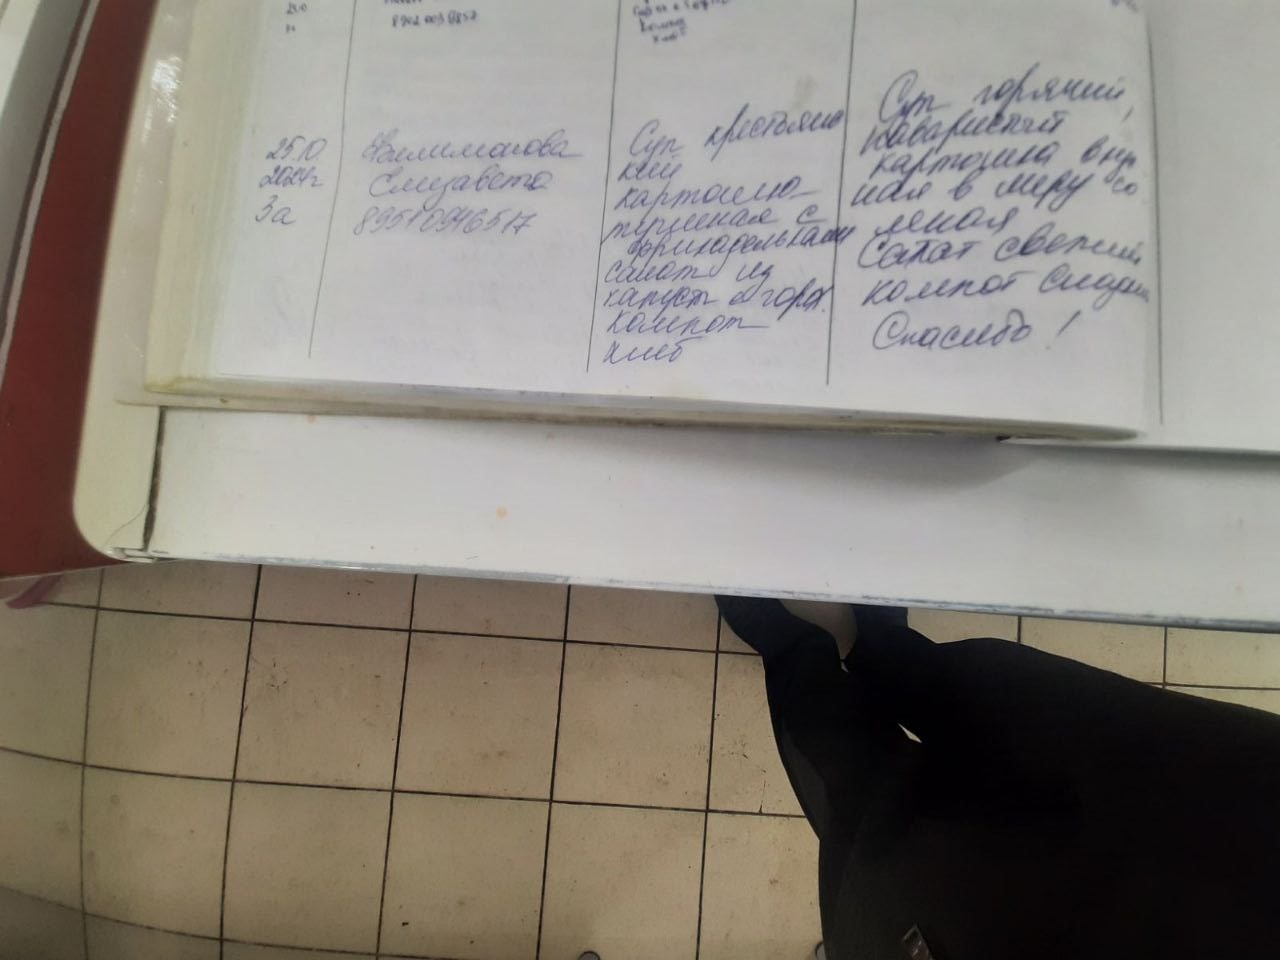 8902 003 8857
хлеб
25.10.
2024г
3а
Филимонова
Елизавета
89510946517
Суп крестьянс
кий
картошка
тушеная с
фрикадельками
салат из
капуст и горох.
компот
хлеб
Суп горячий,
наваристый
картошка вку
ная в меру со
леная
Салат свежий
компот сладкий
Спасибо!